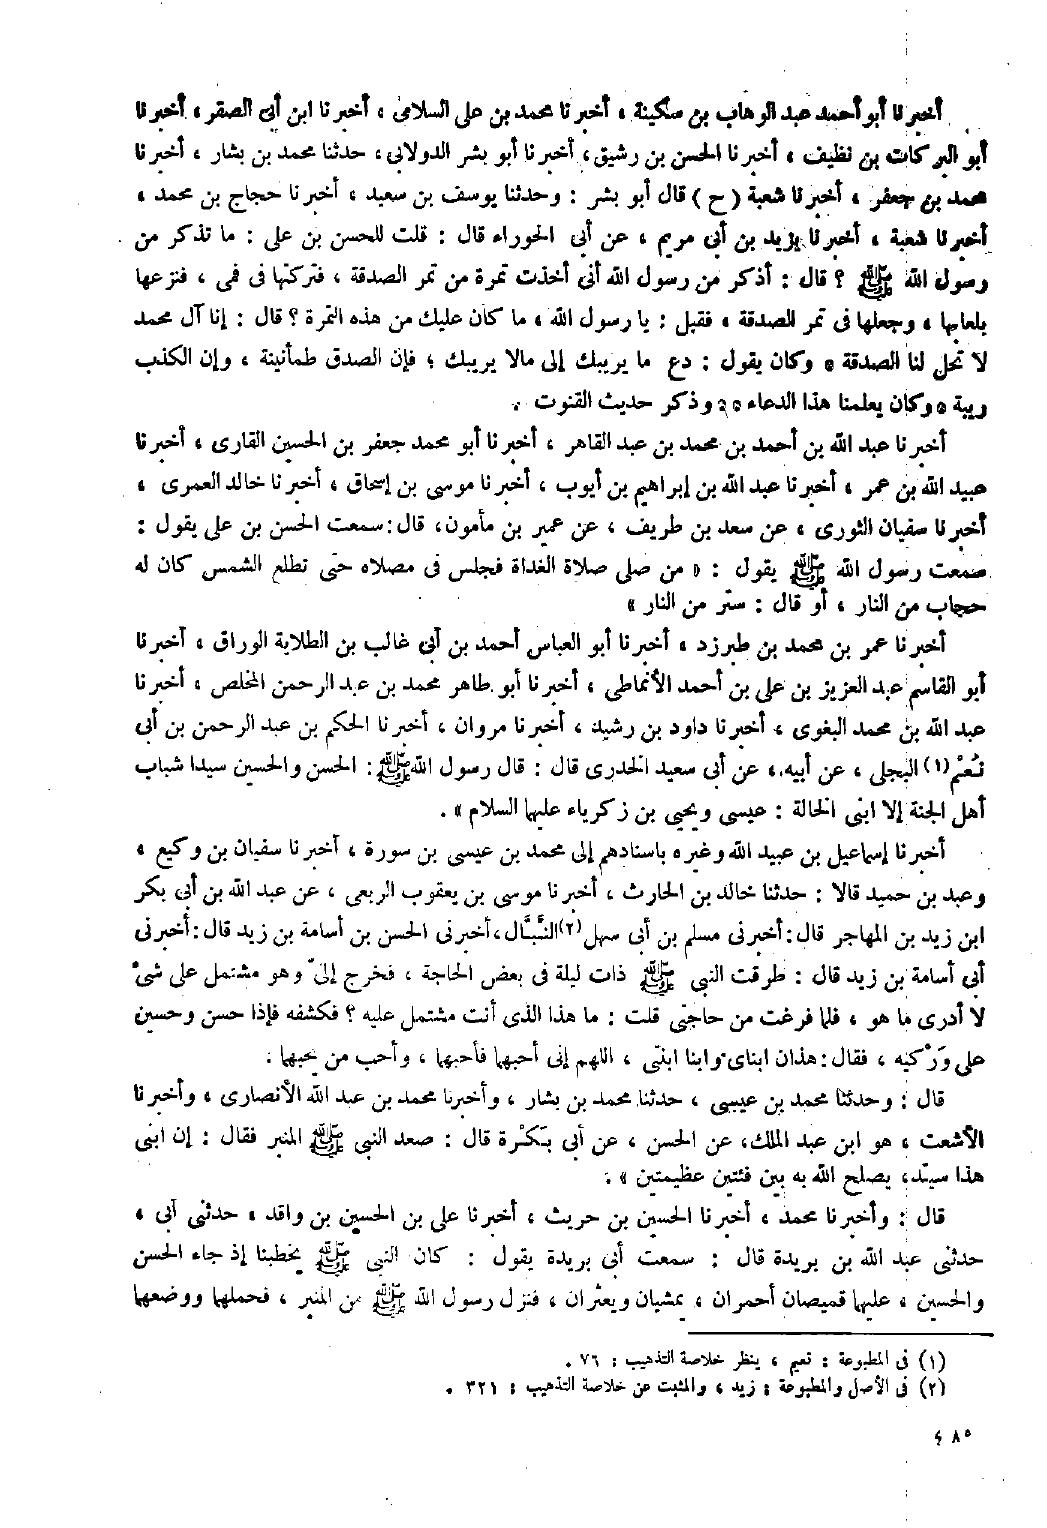 أخبرنا أبو أحمد عبد الوهاب بن سكينة ، أخبرنا محمد بن على السلامى ، أخبرنا ابن أبى الصقر ، أخبرنا
أبو البركات بن نظيف ، أخبرنا الحسن بن رشيق ، أخبرنا أبو بشر الدولابى ، حدثنا محمد بن بشار ، أخبرنا
محمد بن جعفر ، أخبرنا شعبة ( ح ) قال أبو بشر : وحدثنا يوسف بن سعيد ، أخبرنا حجاج بن محمد ،
أخبرنا شعبة ، أخبرنا يزيد بن أبى مريم ، عن أبى الحوراء قال : قلت للحسن بن على : ما تذكر من
رسول الله ﷺ ؟ قال : أذكر من رسول الله أنى أخذت تمرة من تمر الصدقة ، فتركتها فى فمى ، فنزعها
بلعابها ، وجعلها فى تمر الصدقة ، فقيل : يا رسول الله ، ما كان عليك من هذه التمرة ؟ قال : إنا آل محمد
لا تحل لنا الصدقة » وكان يقول : دع ما يريبك إلى مالا يريبك ؛ فإن الصدق طمأنينة ، وإن الكذب
ريبة » وكان يعلمنا هذا الدعاء » : وذكر حديث القنوت .
أخبرنا عبد الله بن أحمد بن محمد بن عبد القاهر ، أخبرنا أبو محمد جعفر بن الحسين القارى ، أخبرنا
عبيد الله بن عمر ، أخبرنا عبد الله بن إبراهيم بن أيوب ، أخبرنا موسى بن إسحاق ، أخبرنا خالد العمرى ،
أخبرنا سفيان الثورى ، عن سعد بن طريف ، عن عمير بن مأمون ، قال : سمعت الحسن بن على يقول :
سمعت رسول الله ﷺ يقول : « من صلى صلاة الغداة فجلس فى مصلاه حتى تطلع الشمس كان له
حجاب من النار ، أو قال : ستر من النار »
أخبرنا عمر بن محمد بن طبرزد ، أخبرنا أبو العباس أحمد بن أبى غالب بن الطلاية الوراق ، أخبرنا
أبو القاسم عبد العزيز بن على بن أحمد الأنماطى ، أخبرنا أبو طاهر محمد بن عبد الرحمن المخلص ، أخبرنا
عبد الله بن محمد البغوى ، أخبرنا داود بن رشيد ، أخبرنا مروان ، أخبرنا الحكم بن عبد الرحمن بن أبى
نُعْم (١) البجلى ، عن أبيه ، عن أبى سعيد الخدرى قال : قال رسول الله ﷺ : الحسن والحسين سيدا شباب
أهل الجنة إلا ابنى الخالة : عيسى ويحيى بن زكرياء عليها السلام » .
أخبرنا إسماعيل بن عبيد الله وغيره باسنادهم إلى محمد بن عيسى بن سورة ، أخبرنا سفيان بن وكيع ،
وعبد بن حميد قالا : حدثنا خالد بن الحارث ، أخبرنا موسى بن يعقوب الربعى ، عن عبد الله بن أبى بكر
ابن زيد بن المهاجر قال : أخبرنى مسلم بن أبى سهل (٢) النَّبَّال ، أخبرنى الحسن بن أسامة بن زيد قال : أخبرنى
أبى أسامة بن زيد قال : طرقت النبى ﷺ ذات ليلة فى بعض الحاجة ، فخرج إلىّ وهو مشتمل على شئ
لا أدرى ما هو ، فلما فرغت من حاجتى قلت : ما هذا الذى أنت مشتمل عليه ؟ فكشفه فإذا حسن وحسين
على وَرْكيه ، فقال : هذان ابناى وابنا ابنتى ، اللهم إنى أحبها فأحبها ، وأحب من يحبها .
قال : وحدثنا محمد بن عيسى ، حدثنا محمد بن بشار ، وأخبرنا محمد بن عبد الله الأنصارى ، وأخبرنا
الأشعت ، هو ابن عبد الملك ، عن الحسن ، عن أبى بَكْرة قال : صعد النبى ﷺ المنبر فقال : إن ابنى
هذا سيّد ، يصلح الله به بين فئتين عظيمتين » .
قال : وأخبرنا محمد ، أخبرنا الحسين بن حريث ، أخبرنا على بن الحسين بن واقد ، حدثنى أبى ،
حدثنى عبد الله بن بريدة قال : سمعت أبى بريدة يقول : كان النبى ﷺ يخطبنا إذ جاء الحسن
والحسين ، عليها قميصان أحمران ، يمشيان ويعثران ، فنزل رسول الله ﷺ من المنبر ، فحملها ووضعها
(١) فى المطبوعة : نعيم ، ينظر خلاصة التذهيب : ٧٦ .
(٢) فى الأصل والمطبوعة : زيد ، والمثبت عن خلاصة التذهيب : ٣٢١ .
٤٨٥